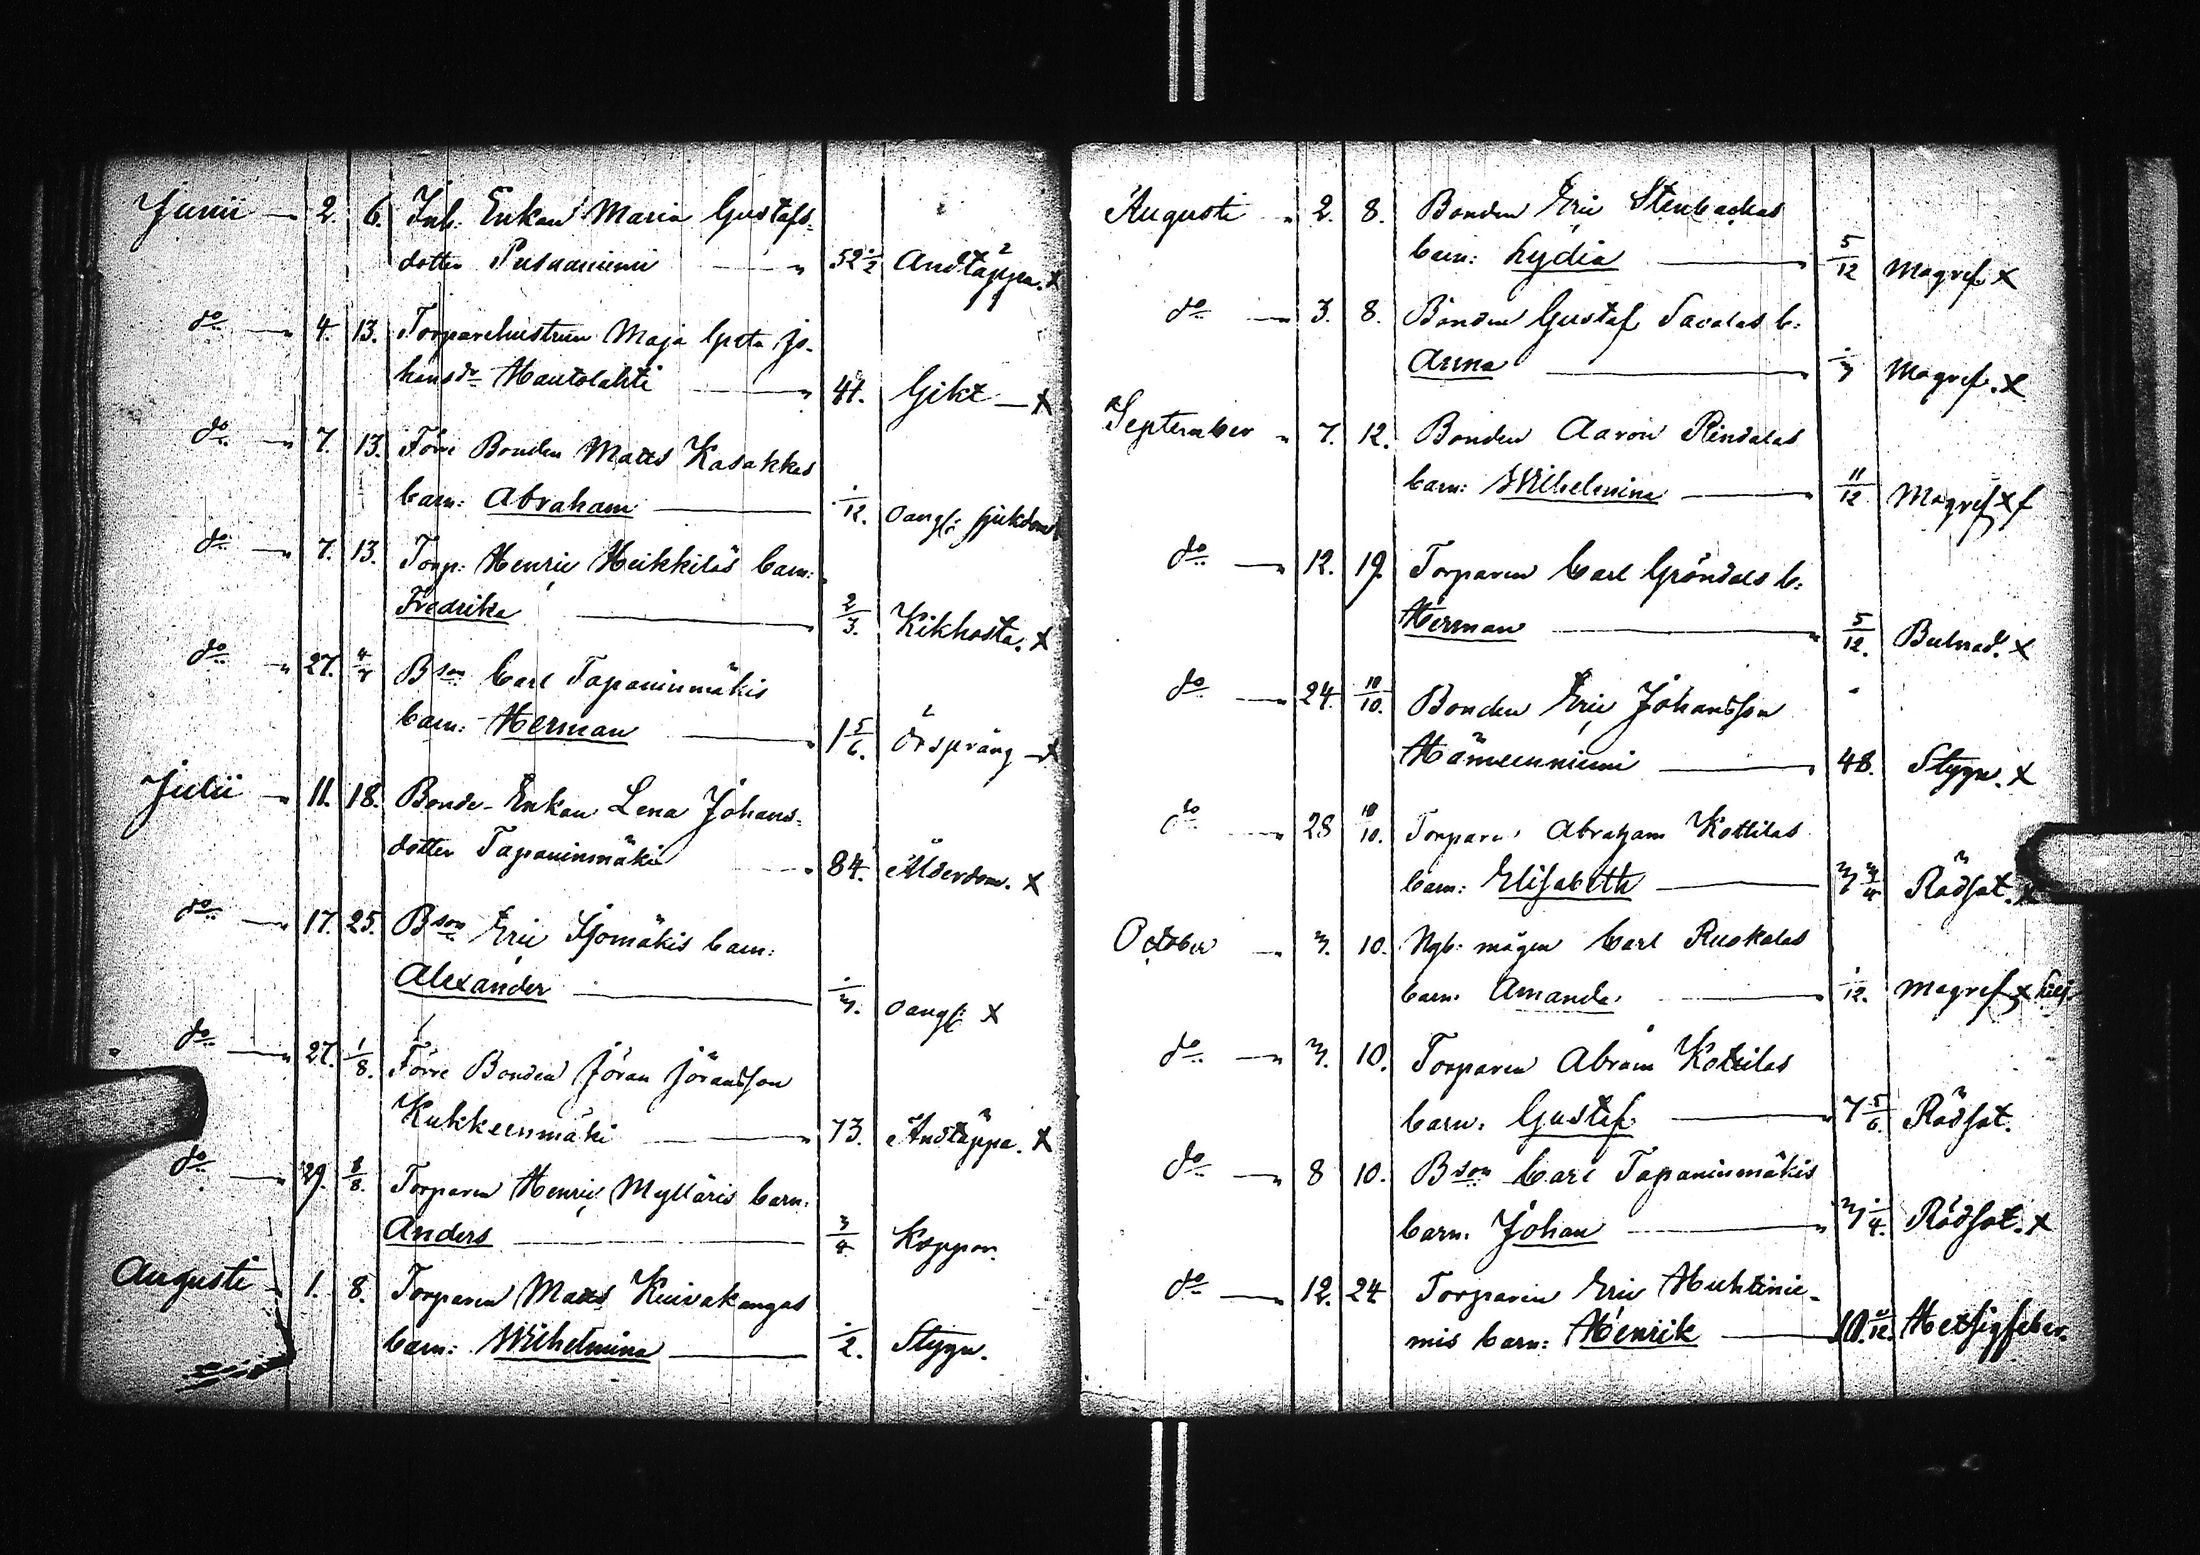 Junii 2. 6. Inh. Enkan Maria Gustafs-
dotter 52 1/2 Andtäppa. x
do 4. 13. Torparehustrun Maja Greta Jo-
hansdr Hautolahti 41. Gikt x
do 7. 13. Förre Bonden Matts Kasakkas
barn: Abraham 1/12. oangf: sjukdom
do 7. 13. Torp: Henric Heikkiläs barn:
Fredrika 2/3. Kikhosta. x
do 27. 4/7 Bson Carl Tapaninmäkis
barn: Herman 1 5/6. Örspräng x
Julii 11. 18. Bonde-Enkan Lena Johans-
dotter Tapaninmäki 84. Ålderdom. x
do 17. 25. Bson Eric barn:
Alexander 1/3. oangf: x
do 27. 1/8. Förre Bonden Jöran Jöransson
Kukkeenmäki 73. Andtäppa. x
do 29. 8/8. Torparen Henric Mylläris barn:
Anders 3/4 Koppor.
Augusti 1. 8. Torparen Matts Kuivakangas
barn: Wilhelmina 1/2. Stygn.
Augusti 2. 8. Bonden Eric Stenbackas
barn: Lydia 5/12 Magref. x
do 3. 8. Bonden Gustaf Savolas b:
Anna 1/3 Magref. x
September 7. 12. Bonden Aaron Rindalas
barn: Wilhelmina 11/12 Magref x f
do 12. 19. Torparen Carl Gröndals b:
Herman 5/12. Bulnad. x
do 24. 10/10. Bonden Eric Johansson
Hämeenniemi 48. Stygn. x
do 28 10/10. Torparen Abraham Kottilas
barn: Elisabeth 3 3/4 Rödsot. x
October 3. 10. Ngb: mågen Carl Ruokolas
barn: Amanda 1/12. Magref x
do 3. 10. Torparen Abram Kottilas
barn: Gustaf 7 5/6. Rödsot.
do 8 10. Bson Carl Tapaninmäkis
barn: Johan 3 1/4. Rödsot. x
do 12. 24 Torparen Eric Huhtinie-
mis barn: Henrik 10. Hetsigfeber.